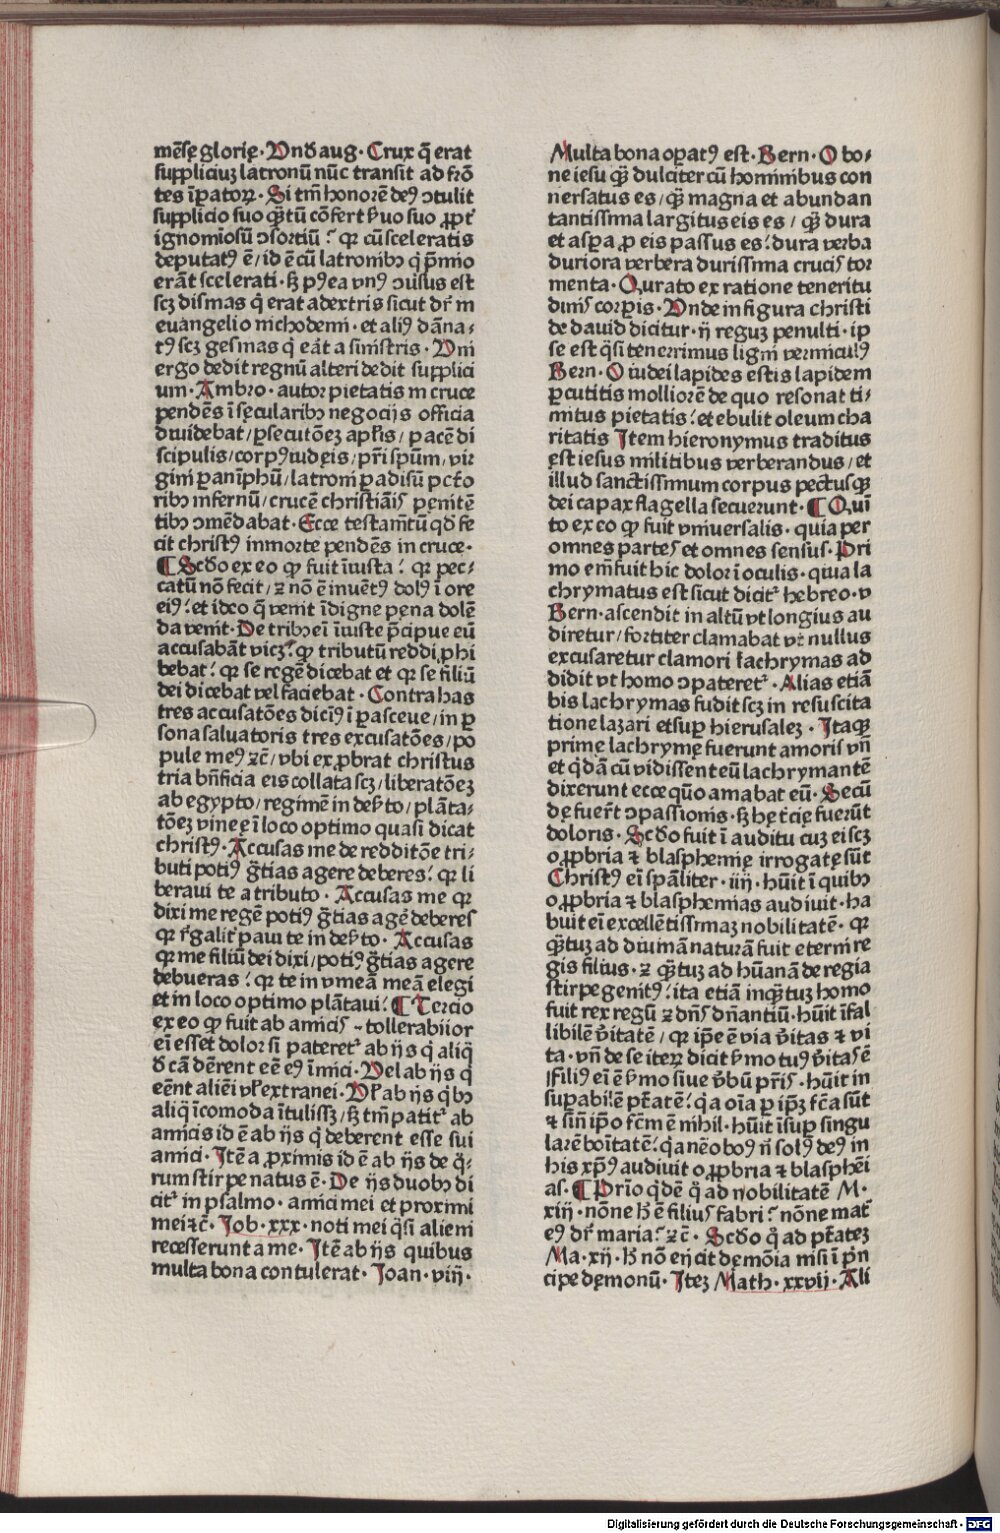 mēsę glorię. Vnď aug. Crux q̄ erat
suppliciuꝫ latronū nūc transit ad frō
tes īꝑatoꝝ. Si tm̄ honorē deꝰ ↄtulit
supplicio suo qꝫtū cōfert ẜuo suo ꝓpt̓
ignomīosū ↄsortiū? qꝛ cū sceleratis
deputatꝰ ē/ id ē cū latronibꝰ q̓ pͥmo
erāt scelerati. sꝫ pꝰea vnꝰ ↄuisus est
scꝫ dismas q̓ erat a dextris sicut dr̄ in
euangelio nichodemi. et aliꝰ dāna⸗
tꝰ scꝫ gesmas q̓ eāt a sinistris. Vni
ergo dedit regnū alteri dedit supplici
um. Ambro. autor pietatis in cruce
pendēs ī sęcularibꝰ negocijs officia
diuidebat/ ꝑsecutōeꝫ apl̓is/ pacē di
scipulis/ corpꝰ iudęis/ pr̄i spūm/ vir
gini ꝑanīphū/ latroni ꝑadisū pctō
ribꝰ infernū/ crucē christiāis penitē
tibꝰ ↄmēdabat. Ecce testam̄tū qď fe
cit christꝰ in morte pendēs in cruce.
¶ Scďo ex eo ꝙ fuit īiusta? qꝛ pec⸗
catū nō fecit/ ꝛ nō ē inuētꝰ dolꝰ ī ore
eiꝰ? et ideo q̄ venit īdigne pena dolē
da venit. De tribꝰ eī īiuste p̄cipue eū
accusabāt vicꝫ? ꝙ tributū reddi ꝓhi
bebat? qꝛ se regē dicebat et qꝛ se filiū
dei dicebat vel faciebat. Contra has
tres accusatōes diciꝰ ī ꝑasceue/ in ꝑ
sona saluatoris tres excusatōes/ po
pule meꝰ ꝛc̄/ vbi exꝓbrat christus
tria bn̄ficia eis collata scꝫ/ liberatōeꝫ
ab egypto/ regimē in deẜto/ plāta⸗
tōeꝫ vineę ī loco optimo quasi dicat
christꝰ. Accusas me de redditōe tri⸗
buti potiꝰ gr̄tias agere deberes? qꝛ li
beraui te a tributo. Accusas me qꝛ
dixi me regē potiꝰ gr̄tias agē deberes
qꝛ r̓galit̓ paui te in deẜto. Accusas
qꝛ me filiū dei dixi/ potiꝰ gr̄tias agere
debueras? qꝛ te in vineā meā elegi
et in loco optimo plātaui? ¶ Tercio
ex eo ꝙ fuit ab amicis ‑ tollerabilior
eī esset dolor si pateretᷣ ab ijs q̓ aliq̄
ď cā dēr̄ent eē eꝰ īmici. Vel ab ijs q̓
eēnt aliēi vl̓ extranei. Vl̓ ab ijs q̓bꝰ
aliq̄ īcomoda ītulissꝫ/ sꝫ tm̄ patitᷣ ab
amicis id ē ab ijs q̓ deberent esse sui
amici. Jtē a ꝓximis id ē ab ijs de q̓⸗
rum stirpe natus ē. De ijs duobꝰ di
citᷣ in psalmo. amici mei et proximi
mei ꝛc̄. Job. xxx. noti mei q̓si alieni
recesserunt a me. Jtē ab ijs quibus
multa bona contulerat. Joan. viij.
Multa bona oꝑatꝰ est. Bern. O bo⸗
ne iesu qꝫ dulciter cū hominibus con
uersatus es/ qꝫ magna et abundan
tantissima largitus eis es/ qꝫ dura
et asꝑa ꝓ eis passus es? dura verba
duriora verbera durissima crucis tor
menta. Qurato ex ratione teneritu
dinis corꝑis. Vnde in figura christi
de dauid dicitur. ij reguꝫ penulti. ip
se est q̓si tenerrimus ligni vermiculꝰ
Bern. O iudei lapides estis lapidem
ꝑcutitis molliorē de quo resonat ti⸗
nitus pietatis? et ebulit oleum cha
ritatis Jtem hieronymus traditus
est iesus militibus verberandus/ et
illud sanctissimum corpus pectusqꝫ
dei capax flagella secuerunt. ¶ Qui
to ex eo ꝙ fuit vniuersalis. quia per
omnes partes et omnes sensus. Pri
mo em̄ fuit hic dolor ī oculis. quia la
chrymatus est sicut dicitᷣ hebreo. v
Bern. ascendit in altū vt longius au
diretur/ fortiter clamabat vt nullus
excusaretur clamori lachrymas ad
didit vt homo ↄpateretᷣ. Alias etiā
bis lachrymas fudit scꝫ in resuscita
tione lazari et suꝑ hierusaleꝫ. Jtaqꝫ
prime lachrymę fuerunt amoris vn̄
et q̓dā cū vidissent eū lachrymantē
dixerunt ecce quō amabat eū. Secū
dę fuer̄t ↄpassionis. sꝫ hę t̓cię fuerūt
doloris. Scďo fuit ī auditu cuꝫ ei scꝫ
oꝓpbria ꝛ blasphemię irrogatę sūt
Christꝰ eī sp̄aliter. iiij. hūit ī quibꝰ
oꝓpbria ꝛ blasphemias audiuit. ha
buit eī excellētissimaꝫ nobilitatē. qꝛ
qꝫtuꝫ ad diuinā naturā fuit eterni re
gis filius. ꝛ qꝫtuꝫ ad hūanā de regia
stirpe genitꝰ? ita etiā inqꝫtuꝫ homo
fuit rex regū ꝛ dn̄s dn̄antiū. hūit īfal
libilē v̓itatē/ qꝛ ip̄e ē via v̓itas ꝛ vi
ta. vn̄ de se iteꝝ dicit ẜmo tuꝰ v̓itas ē
filiꝰ eī ē ẜmo siue v̓bū pr̄is. hūit in
suꝑabilē ptātē? q̓a oīa ꝑ ip̄ꝫ fc̄a sūt
ꝛ sin̄ ip̄o fc̄m ē nihil. hūit īsuꝑ singu
larē boītatē? q̓a nēo boꝰ n̄ solꝰ deꝰ in
his xp̄ꝰ audiuit oꝓpbria ꝛ blasphēi
as. ¶ Prīo q̓dē q̓ ad nobilitatē M.
xiij. nōne h̄ ē filius fabri? nōne mat̄
eꝰ dr̄ maria? ꝛc̄. Scďo q̓ ad ptāteꝫ
Ma. xij. h̄ nō eijcit dęmōia nisi ī p̄n
cipe dęmonū. Jteꝫ Math. xxvij. Ali
Digitalisierung gefördert durch die Deutsche Forschungsgemeinschaft - DFG